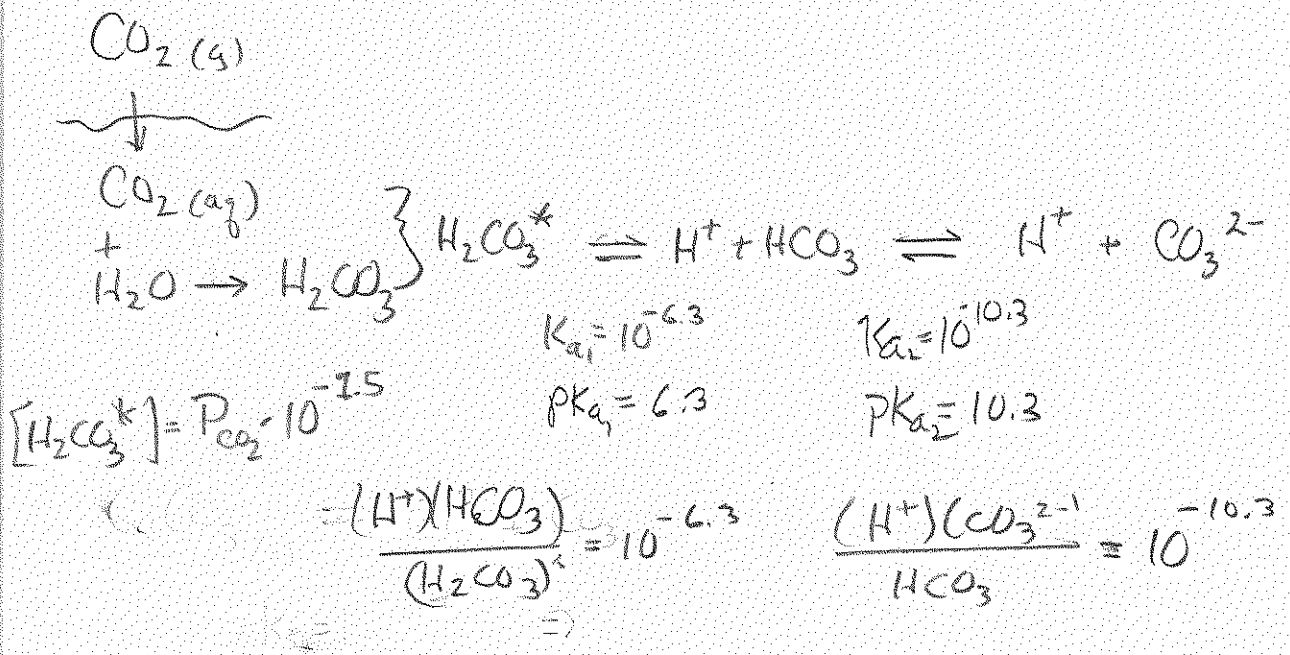 CO₂ (g)
CO₂ (aq)
+
H₂O → H₂CO₃ } H₂CO₃* ⇌ H⁺ + HCO₃ ⇌ H⁺ + CO₃²⁻
Kₐ₁ = 10^-6.3 Kₐ₂ = 10^-10.3
pKₐ₁ = 6.3 pKₐ₂ = 10.3
[H₂CO₃*] = P_CO₂ · 10^-1.5
= (H⁺)(HCO₃) / (H₂CO₃)* = 10^-6.3 (H⁺)(CO₃²⁻) / HCO₃ = 10^-10.3